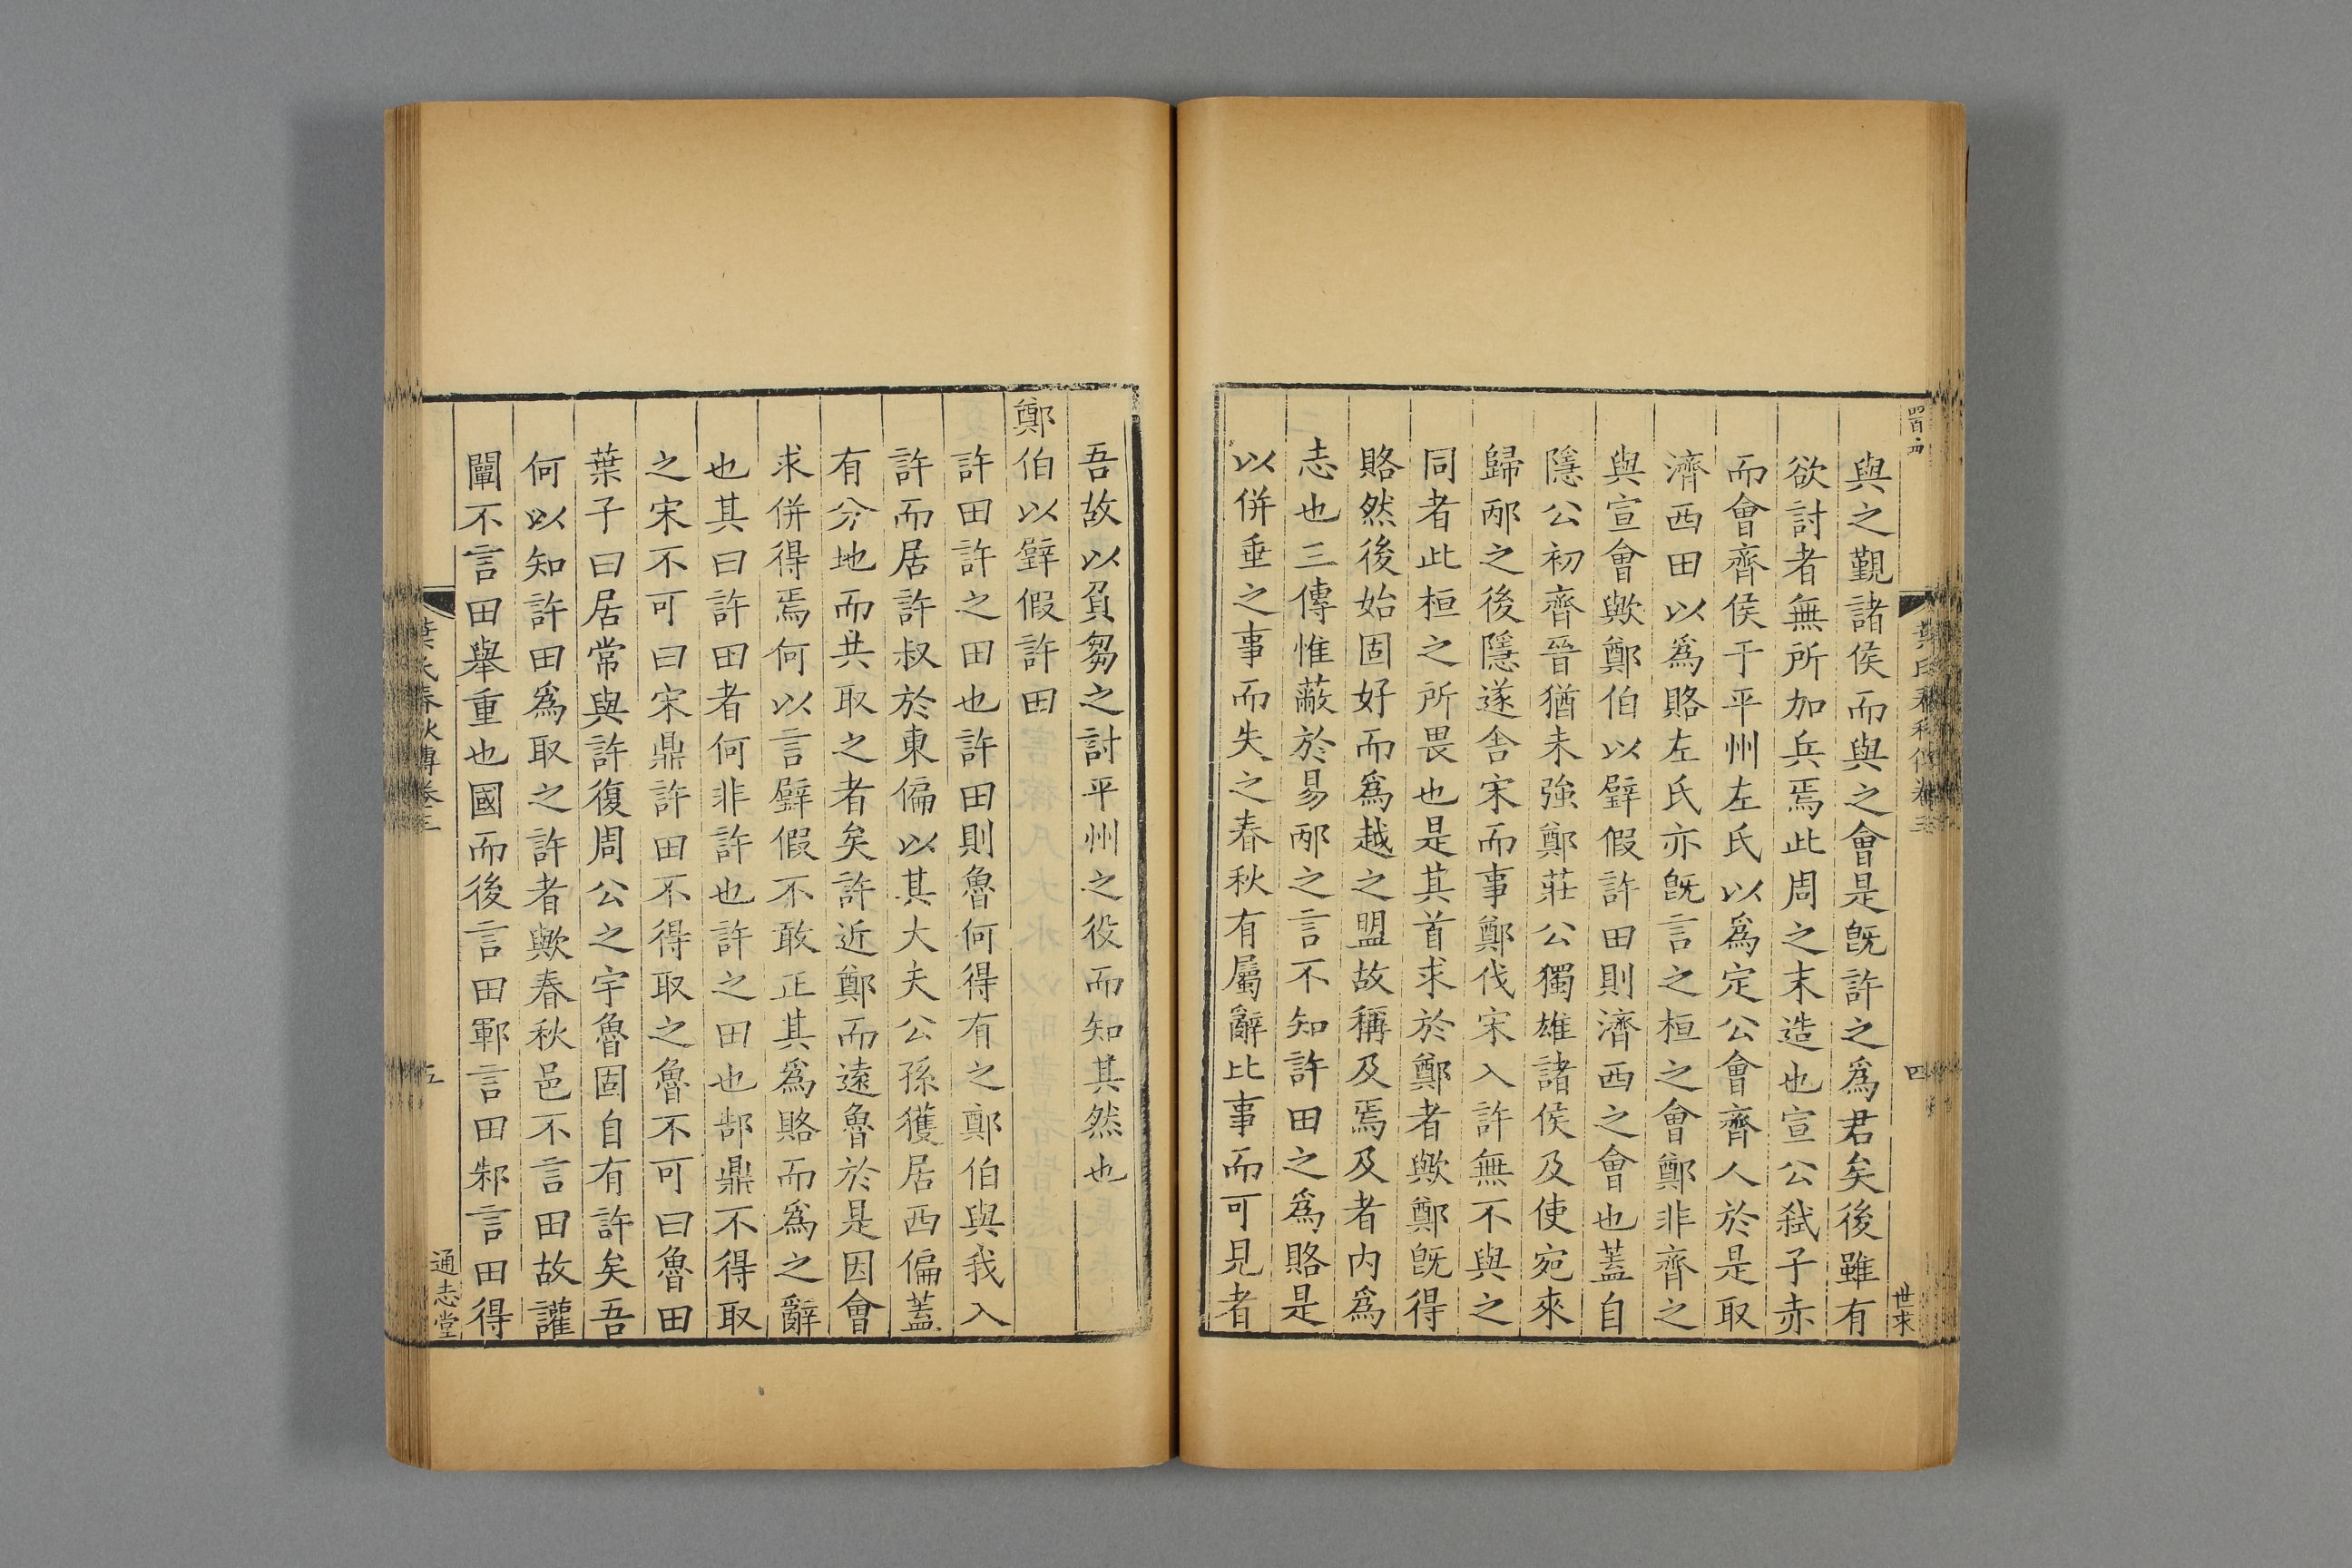 與之觀諸侯而與之會是旣許之爲君矣後雖有
欲討者無所加兵焉此周之末造也宣公弑子赤
而會齊侯于平州左氏以爲定公會齊人於是取
濟西田以爲賂左氏亦旣言之桓之會鄭非齊之
與宣會歟鄭伯以璧假許田則濟西之會也蓋自
隱公初齊晉猶未強鄭莊公獨雄諸侯及使宛來
歸邴之後隱遂舍宋而事鄭伐宋入許無不與之
同者此桓之所畏也是其首求於鄭者歟鄭旣得
賂然後始固好而爲越之盟故稱及焉及者內爲
志也三傳惟蔽於易邴之言不知許田之爲賂是
以併垂之事而失之春秋有屬辭比事而可見者
葉氏春秋傳卷三
四
世求
吾故以負芻之討平州之役而知其然也
鄭伯以璧假許田
許田許之田也許田則魯何得有之鄭伯與我入
許而居許叔於東偏以其大夫公孫獲居西偏蓋
有分地而共取之者矣許近鄭而遠魯於是因會
求併得焉何以言璧假不敢正其爲賂而爲之辭
也其曰許田者何非許也許之田也郜鼎不得取
之宋不可曰宋鼎許田不得取之魯不可曰魯田
葉子曰居常與許復周公之宇魯固自有許矣吾
何以知許田爲取之許者歟春秋邑不言田故讙
闡不言田舉重也國而後言田鄆言田邾言田得
葉氏春秋傳卷三
五
通志堂